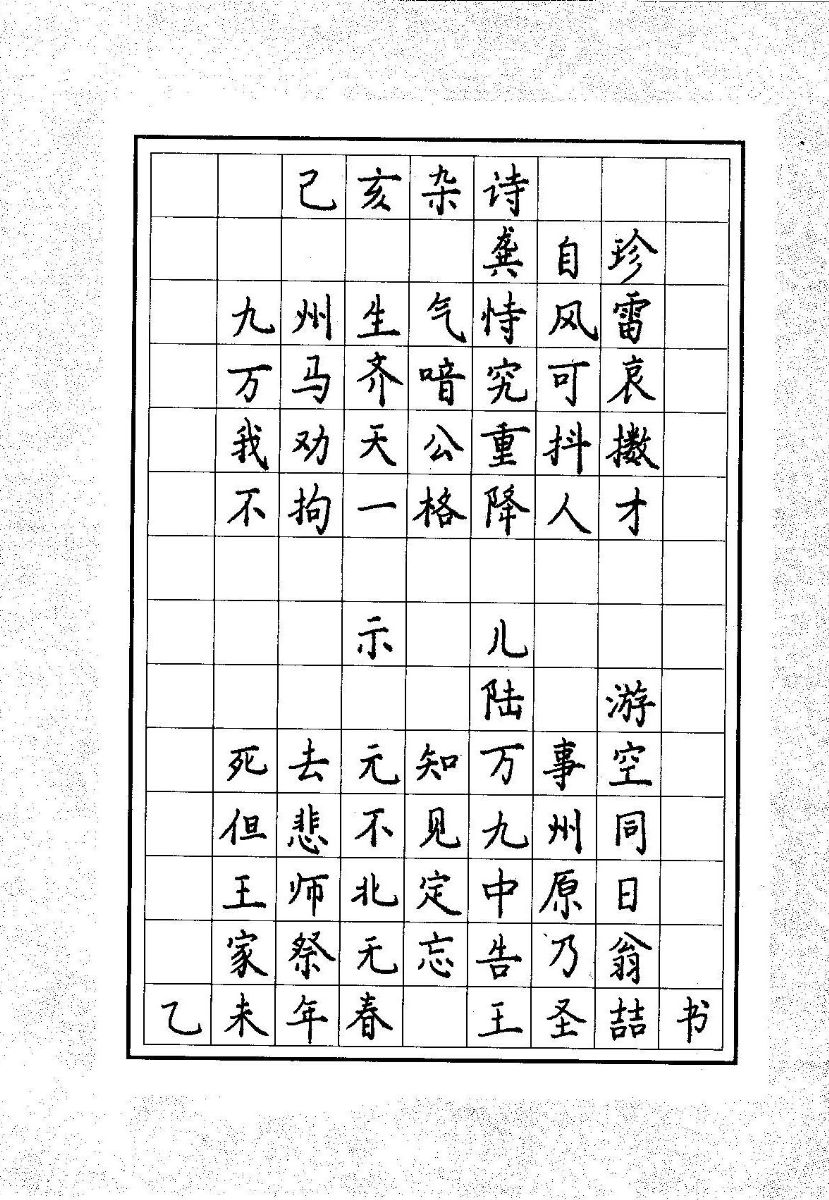 己亥杂诗
龚自珍
九州生气恃风雷
万马齐喑究可哀
我劝天公重抖擞
不拘一格降人才
示 儿
陆 游
死去元知万事空
但悲不见九州同
王师北定中原日
家祭无忘告乃翁
乙未年春 王圣喆书